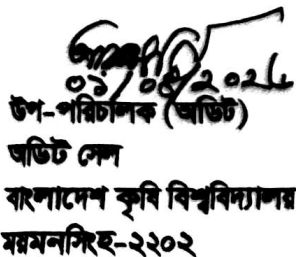 উপ-পরিচালক (অডিট)
অডিট সেল
বাংলাদেশ কৃষি বিশ্ববিদ্যালয়
ময়মনসিংহ-২২০২